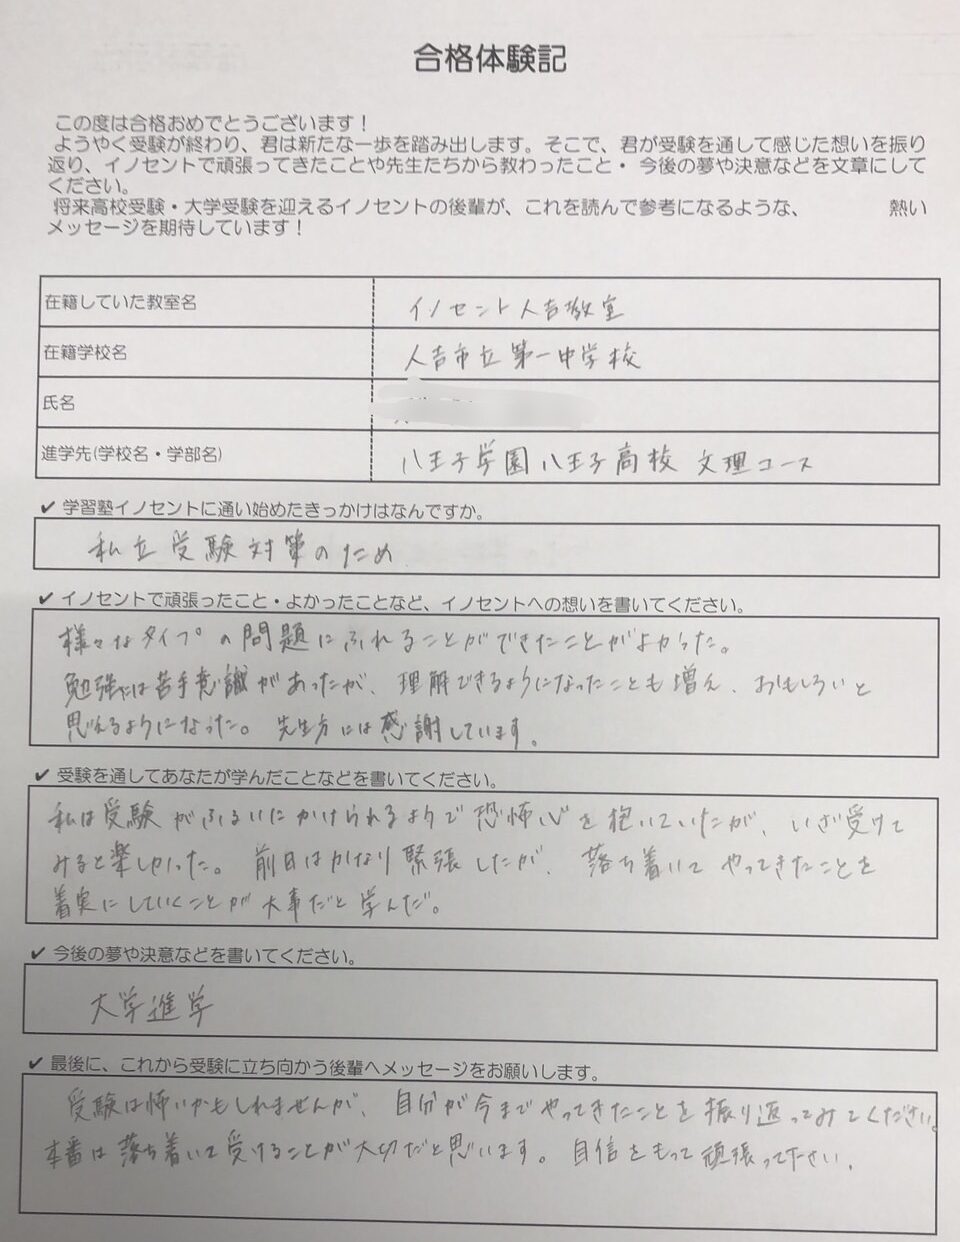 合格体験記
この度は合格おめでとうございます！
ようやく受験が終わり、君は新たな一歩を踏み出します。そこで、君が受験を通して感じた想いを振り
返り、イノセントで頑張ってきたことや先生たちから教わったこと・今後の夢や決意などを文章にして
ください。
将来高校受験・大学受験を迎えるイノセントの後輩が、これを読んで参考になるような、　　　　熱い
メッセージを期待しています！
在籍していた教室名　イノセント人吉教室
在籍学校名　人吉市立第一中学校
氏名
進学先(学校名・学部名)　八王子学園八王子高校 文理コース
✔ 学習塾イノセントに通い始めたきっかけはなんですか。
私立受験対策のため
✔ イノセントで頑張ったこと・よかったことなど、イノセントへの想いを書いてください。
様々なタイプの問題にふれることができたことがよかった。
勉強には苦手意識があったが、理解できるようになったことも増え、おもしろいと
思えるようになった。先生方には感謝しています。
✔ 受験を通してあなたが学んだことなどを書いてください。
私は受験がふるいにかけられるようで恐怖心を抱いていたが、いざ受けて
みると楽しかった。前日はかなり緊張したが、落ち着いてやってきたことを
着実にしていくことが大事だと学んだ。
✔ 今後の夢や決意などを書いてください。
大学進学
✔ 最後に、これから受験に立ち向かう後輩へメッセージをお願いします。
受験は怖いかもしれませんが、自分が今までやってきたことを振り返ってみてください。
本番は落ち着いて受けることが大切だと思います。自信をもって頑張って下さい。